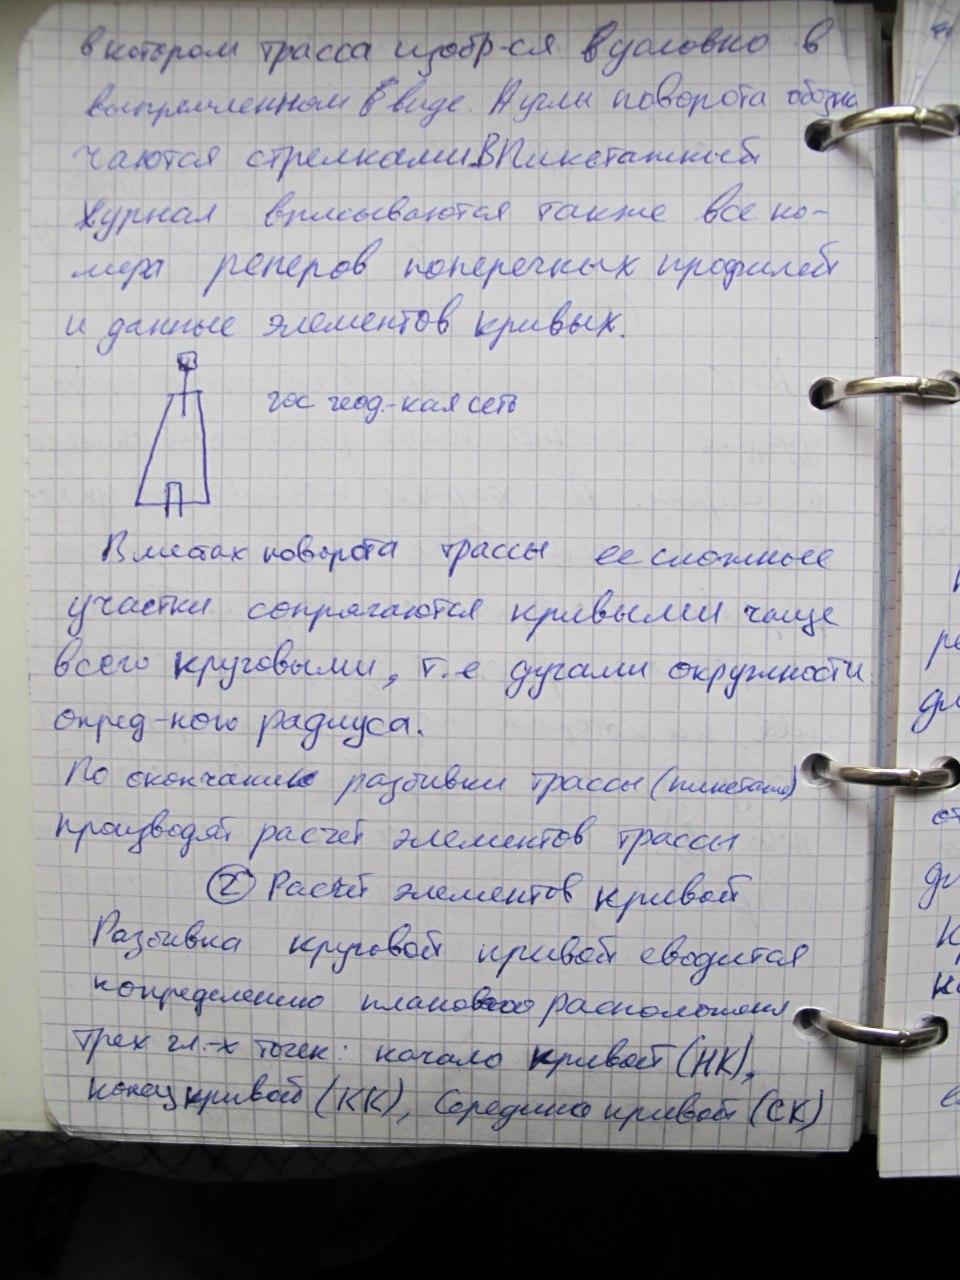 в котором трасса изобр-ся вусловно в
выпрямленном в виде. А углы поворота обозна
чаются стрелками. В Пикетажный
Журнал вписываются также все но-
мера реперов поперечных профилей
и данные элементов кривых.
гос геод.-кая сеть
В местах поворота трассы ее сложные
участки сопрягаются кривыми чаще
всего круговыми, т.е дугами окружности
опред-ного радиуса.
По окончанию разбивки трассы (пикетажа)
производят расчет элементов трассы
② Расчёт элементов кривой
Разбивка круговой кривой сводится
копределению планового расположения
трех гл.-х точек: начало кривой (НК),
конец кривой (КК), Середина кривой (СК)